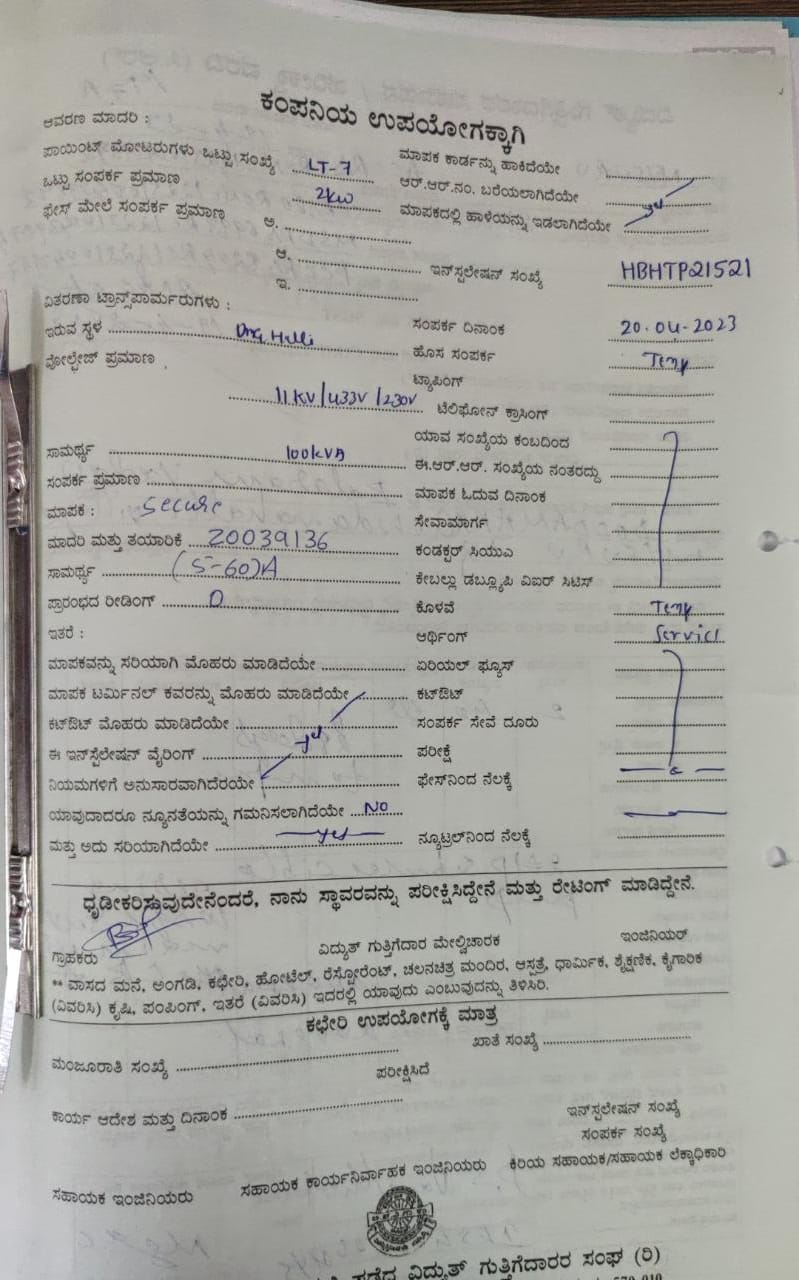 ಕಂಪನಿಯ ಉಪಯೋಗಕ್ಕಾಗಿ
ಆವರಣ ಮಾದರಿ :
ಪಾಯಿಂಟ್ ಮೋಟರುಗಳು ಒಟ್ಟು ಸಂಖ್ಯೆ LT-7 ಮಾಪಕ ಕಾರ್ಡನ್ನು ಹಾಕಿದೆಯೇ
ಒಟ್ಟು ಸಂಪರ್ಕ ಪ್ರಮಾಣ 2kw ಆರ್.ಆರ್.ನಂ. ಬರೆಯಲಾಗಿದೆಯೇ
ಫೇಸ್ ಮೇಲೆ ಸಂಪರ್ಕ ಪ್ರಮಾಣ ಅ. ಮಾಪಕದಲ್ಲಿ ಹಾಳೆಯನ್ನು ಇಡಲಾಗಿದೆಯೇ yes
ಆ. ಇನ್‌ಸ್ಟಲೇಷನ್ ಸಂಖ್ಯೆ HBHTP21521
ಇ.
ವಿತರಣಾ ಟ್ರಾನ್ಸ್‌ಪಾರ್ಮರುಗಳು :
ಇರುವ ಸ್ಥಳ ಸಂಪರ್ಕ ದಿನಾಂಕ 20.04-2023
ವೋಲ್ಟೇಜ್ ಪ್ರಮಾಣ ಹೊಸ ಸಂಪರ್ಕ Temp
ಟ್ಯಾಪಿಂಗ್
11KV/433V/230V ಟೆಲಿಫೋನ್ ಕ್ರಾಸಿಂಗ್
ಯಾವ ಸಂಖ್ಯೆಯ ಕಂಬದಿಂದ
ಸಾಮರ್ಥ್ಯ 100kVA ಈ.ಆರ್.ಆರ್. ಸಂಖ್ಯೆಯ ನಂತರದ್ದು
ಸಂಪರ್ಕ ಪ್ರಮಾಣ ಮಾಪಕ ಓದುವ ದಿನಾಂಕ
ಮಾಪಕ : Secure ಸೇವಾಮಾರ್ಗ
ಮಾದರಿ ಮತ್ತು ತಯಾರಿಕೆ 20039136 ಕಂಡಕ್ಟರ್ ಸಿಯುಎ
ಸಾಮರ್ಥ್ಯ (5-60)A ಕೇಬಲ್ಲು ಡಬ್ಲ್ಯೂಪಿ ವಿಐರ್ ಸಿಟಿಸ್
ಪ್ರಾರಂಭದ ರೀಡಿಂಗ್ 0 ಕೊಳವೆ Temp
ಇತರೆ : ಆರ್ಥಿಂಗ್ Service
ಮಾಪಕವನ್ನು ಸರಿಯಾಗಿ ಮೊಹರು ಮಾಡಿದೆಯೇ ಏರಿಯಲ್ ಫ್ಯೂಸ್
ಮಾಪಕ ಟರ್ಮಿನಲ್ ಕವರನ್ನು ಮೊಹರು ಮಾಡಿದೆಯೇ ಕಟ್‌ಔಟ್
ಕಟ್‌ಔಟ್ ಮೊಹರು ಮಾಡಿದೆಯೇ yes ಸಂಪರ್ಕ ಸೇವೆ ದೂರು
ಈ ಇನ್‌ಸ್ಟೆಲೇಷನ್ ವೈರಿಂಗ್ ಪರೀಕ್ಷೆ
ನಿಯಮಗಳಿಗೆ ಅನುಸಾರವಾಗಿದೆರಯೇ ಫೇಸ್‌ನಿಂದ ನೆಲಕ್ಕೆ
ಯಾವುದಾದರೂ ನ್ಯೂನತೆಯನ್ನು ಗಮನಿಸಲಾಗಿದೆಯೇ NO
ಮತ್ತು ಅದು ಸರಿಯಾಗಿದೆಯೇ yes ನ್ಯೂಟ್ರಲ್‌ನಿಂದ ನೆಲಕ್ಕೆ
ಧೃಡೀಕರಿಸುವುದೇನೆಂದರೆ, ನಾನು ಸ್ಥಾವರವನ್ನು ಪರೀಕ್ಷಿಸಿದ್ದೇನೆ ಮತ್ತು ರೇಟಿಂಗ್ ಮಾಡಿದ್ದೇನೆ.
ಗ್ರಾಹಕರು ವಿದ್ಯುತ್ ಗುತ್ತಿಗೆದಾರ ಮೇಲ್ವಿಚಾರಕ ಇಂಜಿನಿಯರ್
** ವಾಸದ ಮನೆ, ಅಂಗಡಿ, ಕಛೇರಿ, ಹೋಟೆಲ್, ರೆಸ್ಟೋರೆಂಟ್, ಚಲನಚಿತ್ರ ಮಂದಿರ, ಆಸ್ಪತ್ರೆ, ಧಾರ್ಮಿಕ, ಶೈಕ್ಷಣಿಕ, ಕೈಗಾರಿಕ
(ವಿವರಿಸಿ) ಕೃಷಿ, ಪಂಪಿಂಗ್, ಇತರೆ (ವಿವರಿಸಿ) ಇದರಲ್ಲಿ ಯಾವುದು ಎಂಬುವುದನ್ನು ತಿಳಿಸಿರಿ.
ಕಛೇರಿ ಉಪಯೋಗಕ್ಕೆ ಮಾತ್ರ
ಮಂಜೂರಾತಿ ಸಂಖ್ಯೆ ಖಾತೆ ಸಂಖ್ಯೆ
ಪರೀಕ್ಷಿಸಿದೆ
ಕಾರ್ಯ ಆದೇಶ ಮತ್ತು ದಿನಾಂಕ ಇನ್‌ಸ್ಪಲೇಷನ್ ಸಂಖ್ಯೆ
ಸಂಪರ್ಕ ಸಂಖ್ಯೆ
ಸಹಾಯಕ ಇಂಜಿನಿಯರು ಸಹಾಯಕ ಕಾರ್ಯನಿರ್ವಾಹಕ ಇಂಜಿನಿಯರು ಕಿರಿಯ ಸಹಾಯಕ/ಸಹಾಯಕ ಲೆಕ್ಕಾಧಿಕಾರಿ
ಪಡೆದ ವಿದ್ಯುತ್ ಗುತ್ತಿಗೆದಾರರ ಸಂಘ (ರಿ)